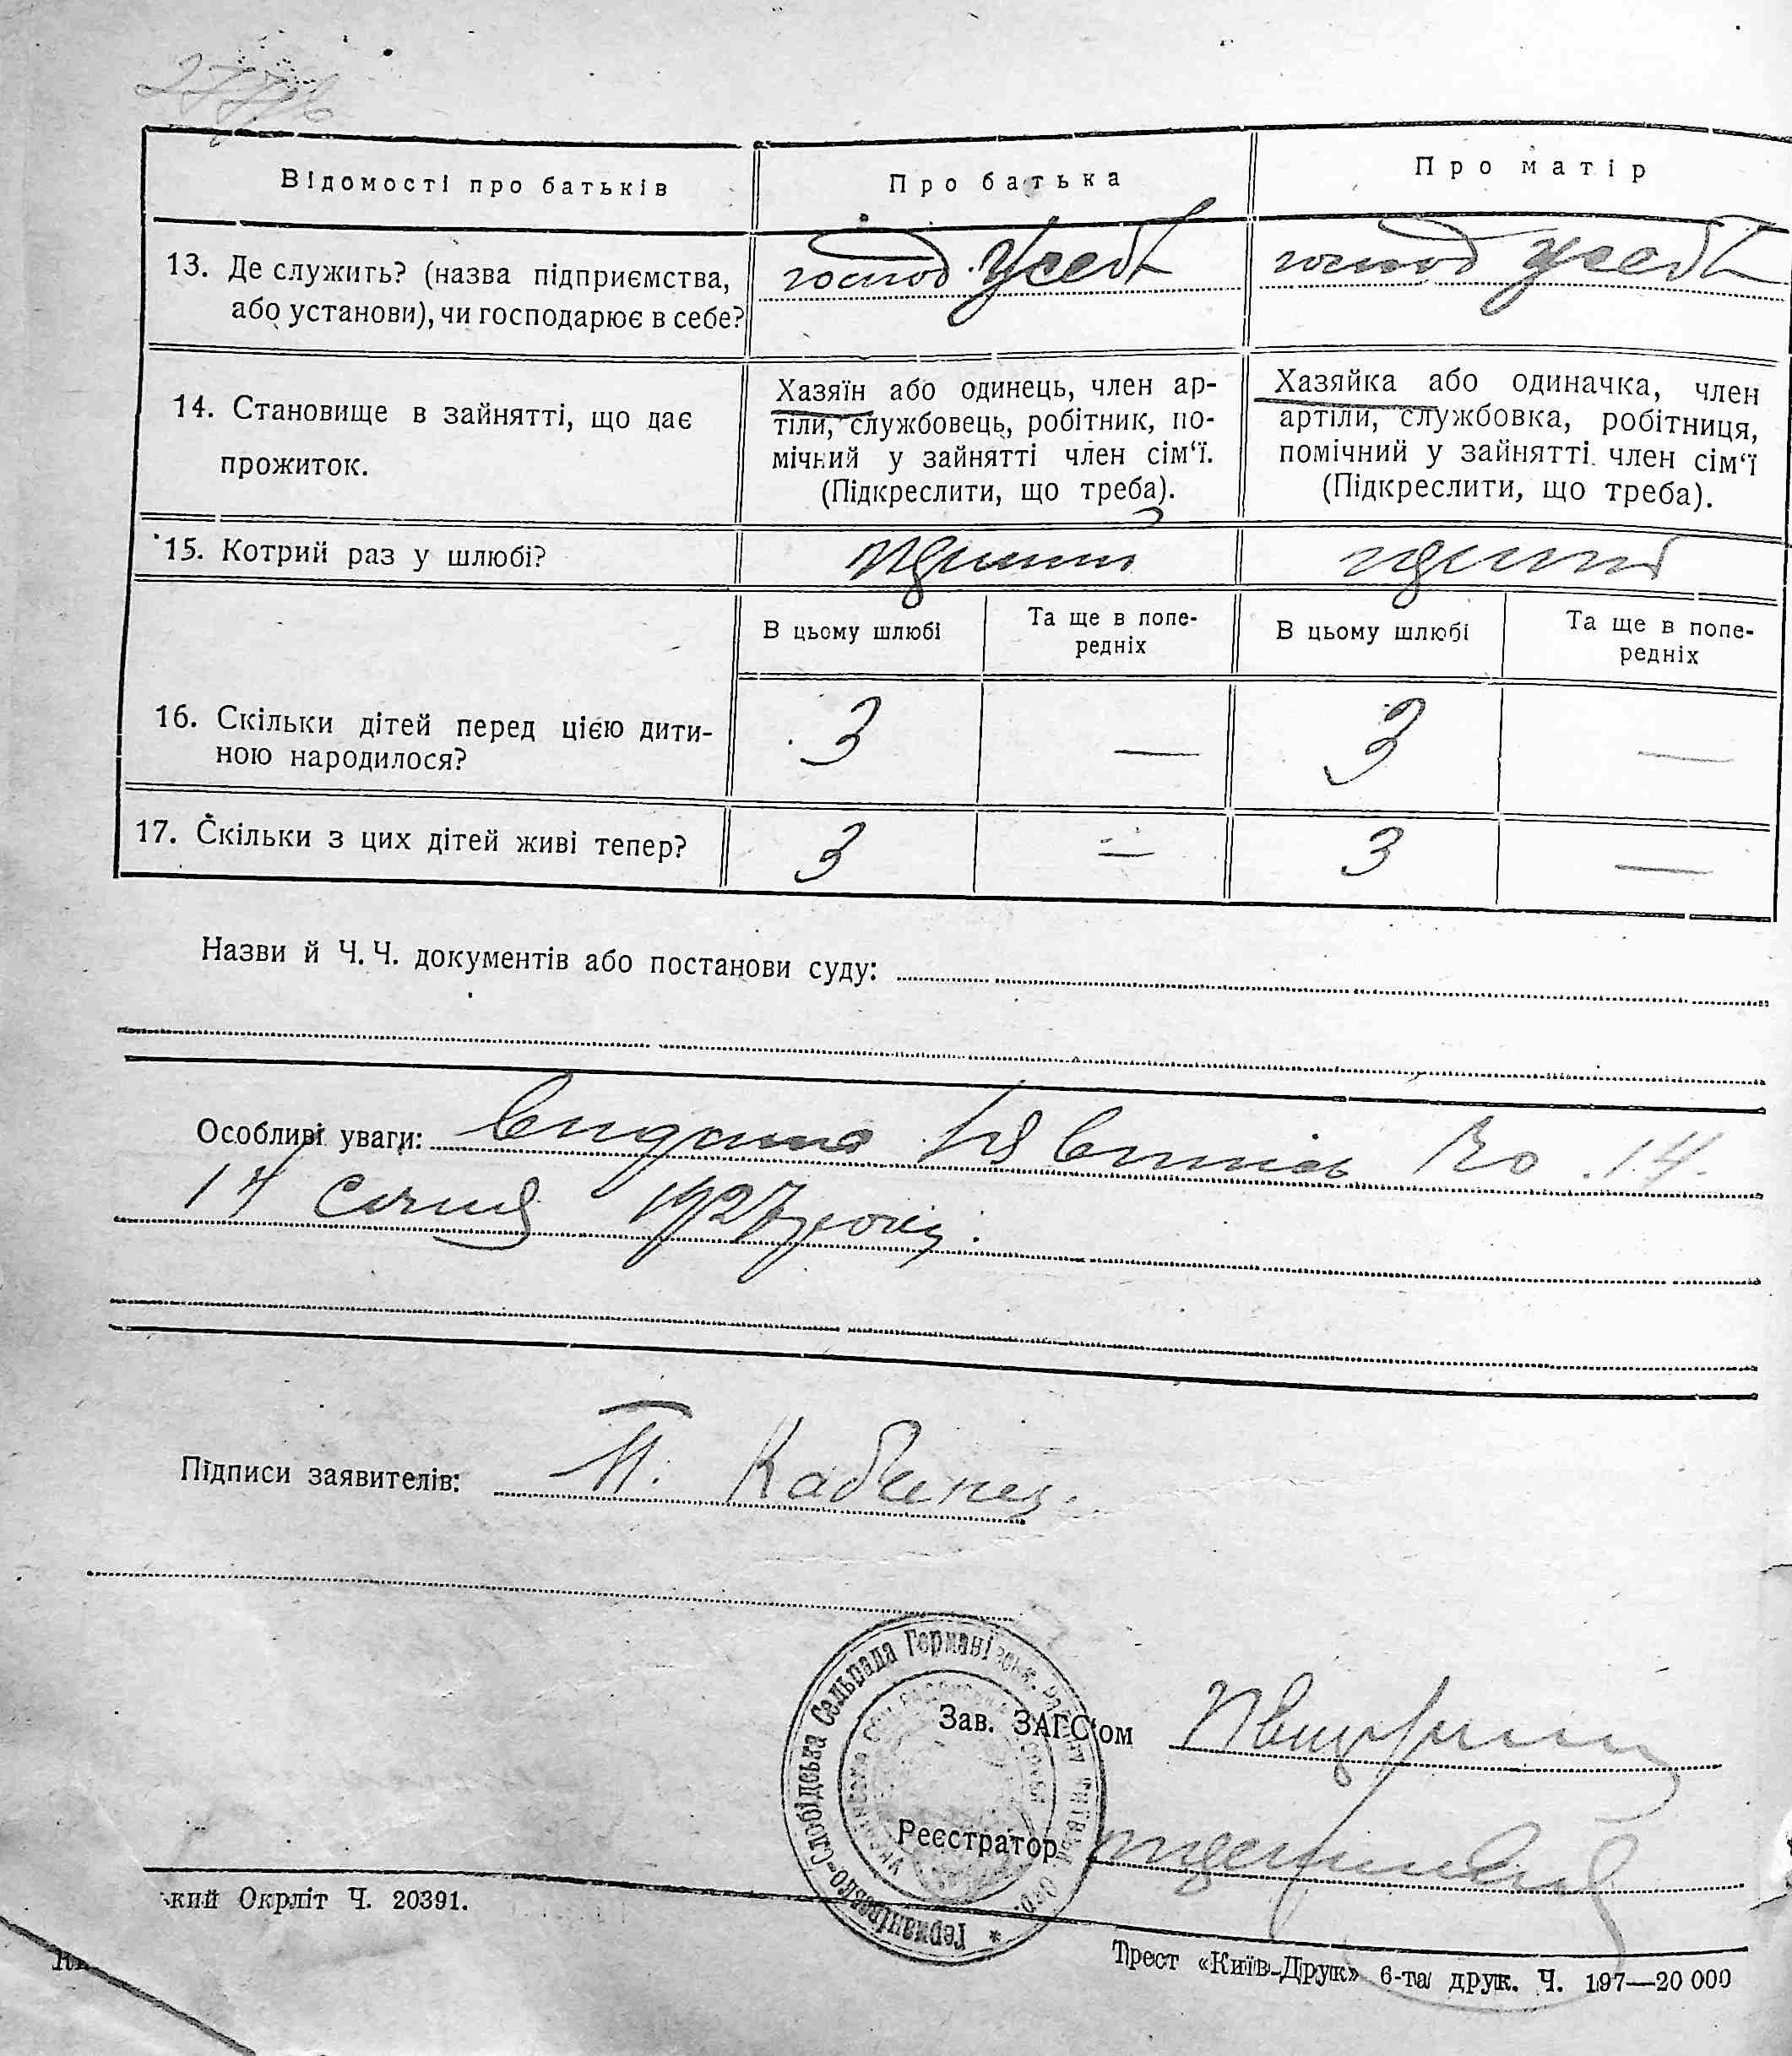 Відомості про батьків
Про батька
Про матір
13. Де служить? (назва підприємства, або установи), чи господарює в себе?
господ. Усебе
господ Усебе
14. Становище в зайнятті, що дає прожиток.
Хазяїн або одинець, член ар-
тіли, службовець, робітник, по-
мічний у зайнятті член сім‘ї.
(Підкреслити, що треба).
Хазяйка або одиначка, член
артіли, службовка, робітниця,
помічний у зайнятті член сім‘ї
(Підкреслити, що треба).
15. Котрий раз у шлюбі?
Перший
перший
В цьому шлюбі
Та ще в попе-
редніх
В цьому шлюбі
Та ще в попе-
редніх
16. Скільки дітей перед цією дити-
ною народилося?
3 — 3 —
17. Скільки з цих дітей живі тепер?
3 — 3 —
Назви й Ч. Ч. документів або постанови суду:
Особливі уваги: Видана No 14.
14 січня 1927 року.
Підписи заявителів: П. Кабинец.
Германівсько-Слобідська Сельрада Германівськ.
Зав. ЗАГС‘ом
Реєстратор
ький Окрліт Ч. 20391.
Трест «Київ-Друк» 6-та друк. Ч. 197—20 000